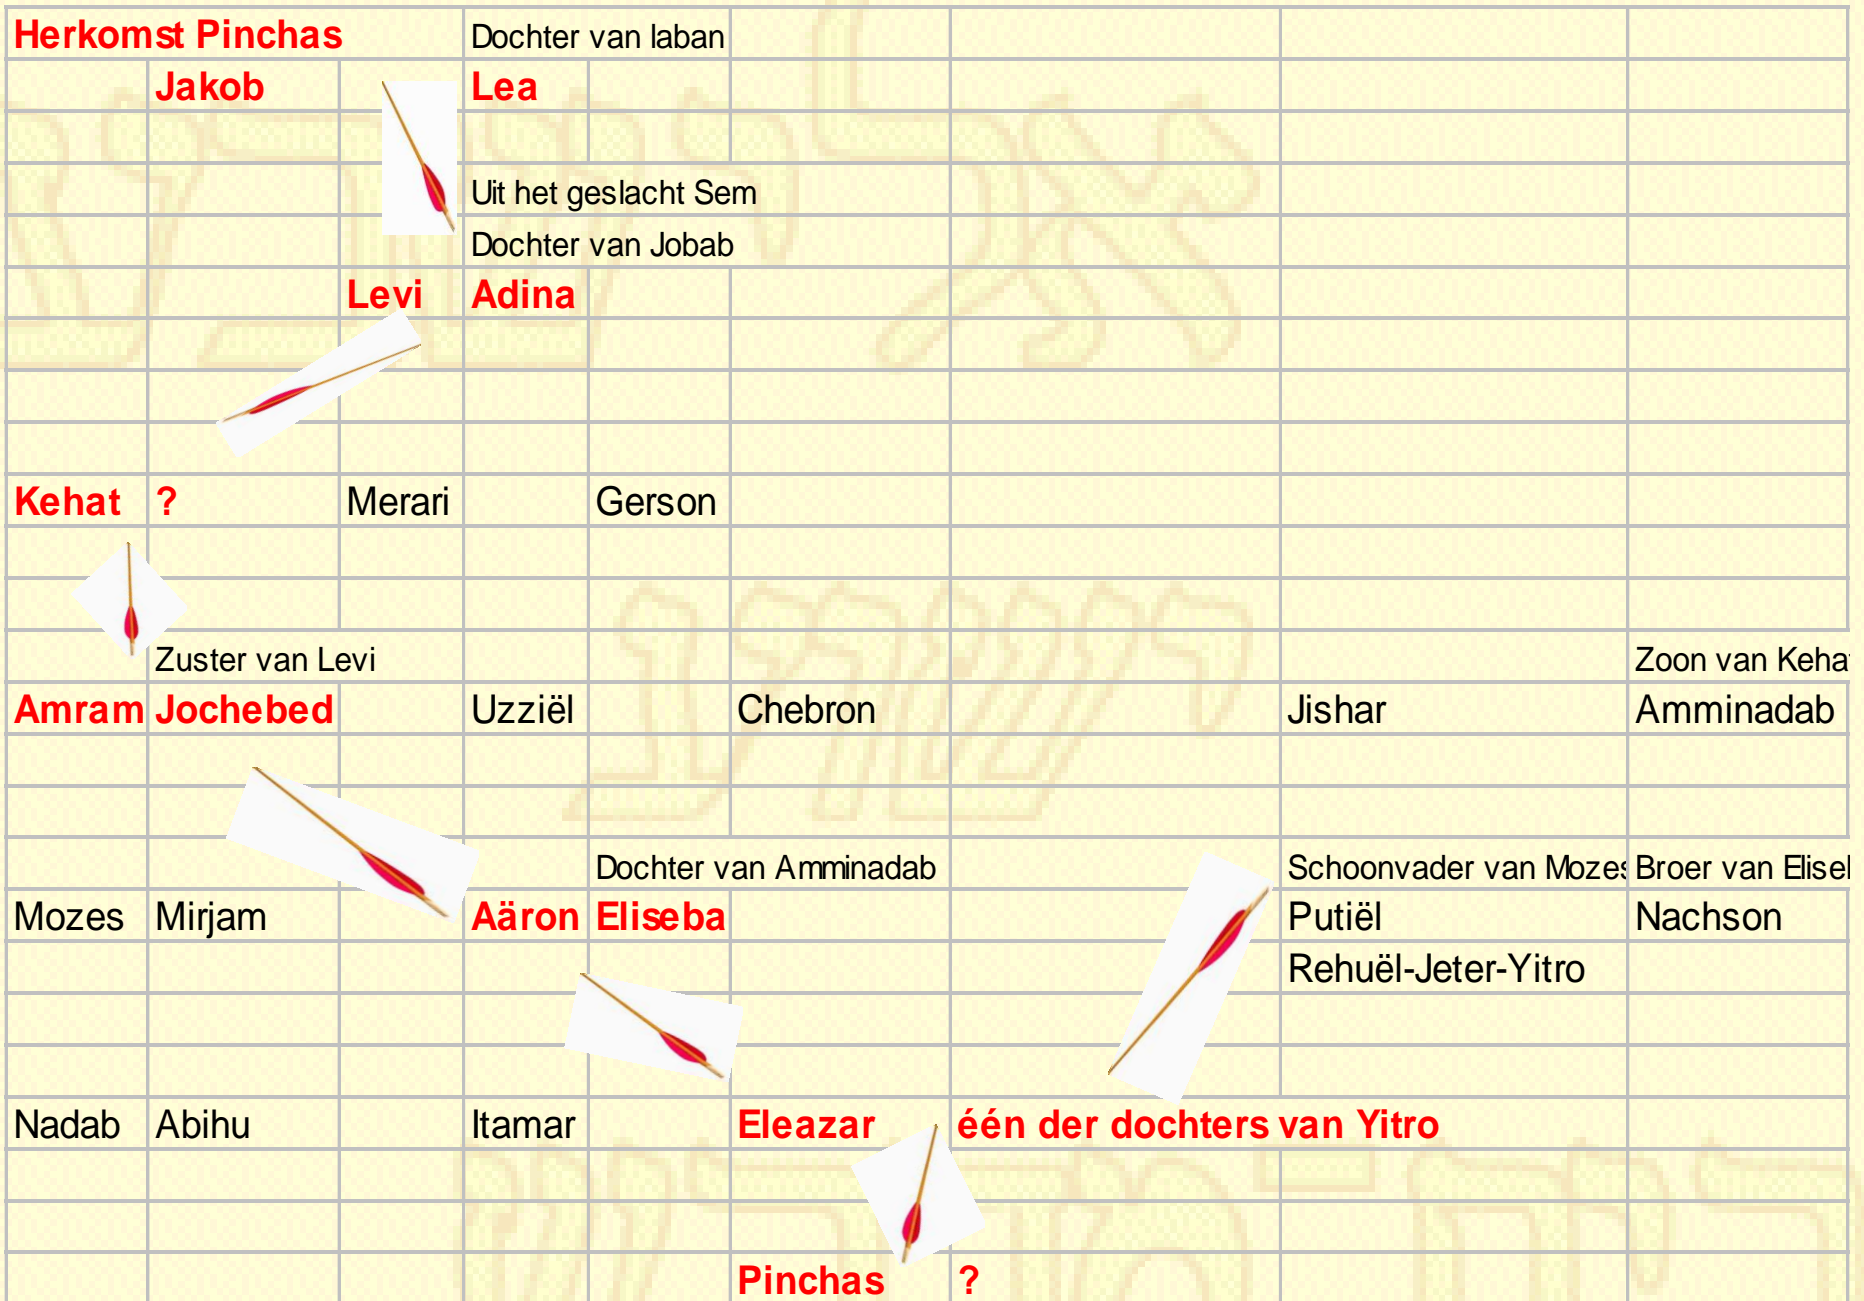 Herkomst Pinchas Dochter van laban
Jakob Lea
Uit het geslacht Sem
Dochter van Jobab
Levi Adina
Kehat ? Merari Gerson
Zuster van Levi Zoon van Kehat
Amram Jochebed Uzziël Chebron Jishar Amminadab
Dochter van Amminadab Schoonvader van Mozes Broer van
Mozes Mirjam Aäron Eliseba Putiël Nachson
Rehuël-Jeter-Yitro
Nadab Abihu Itamar Eleazar één der dochters van Yitro
Pinchas ?